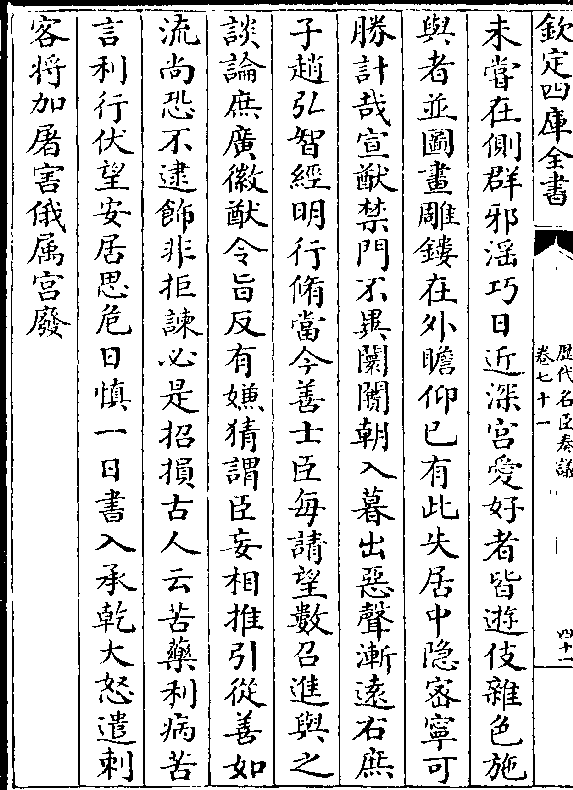 欽定四庫全書
歷代名臣奏議
卷七十一
四十一
未嘗在側群邪淫巧日近深宮愛好者皆遊伎雜色施
與者並圖畫雕鏤在外瞻仰已有此失居中隱宻寧可
勝計哉宣猷禁門不異闤闠朝入暮出惡聲漸遠右庶
子趙弘智經明行脩當今善士臣每請望數召進與之
談論庶廣徽猷令旨反有嫌猜謂臣妄相推引從善如
流尚恐不逮飾非拒諫必是招損古人云苦藥利病苦
言利行伏望安居思危日慎一日書入承乾大怒遣刺
客將加屠害俄属宫廢